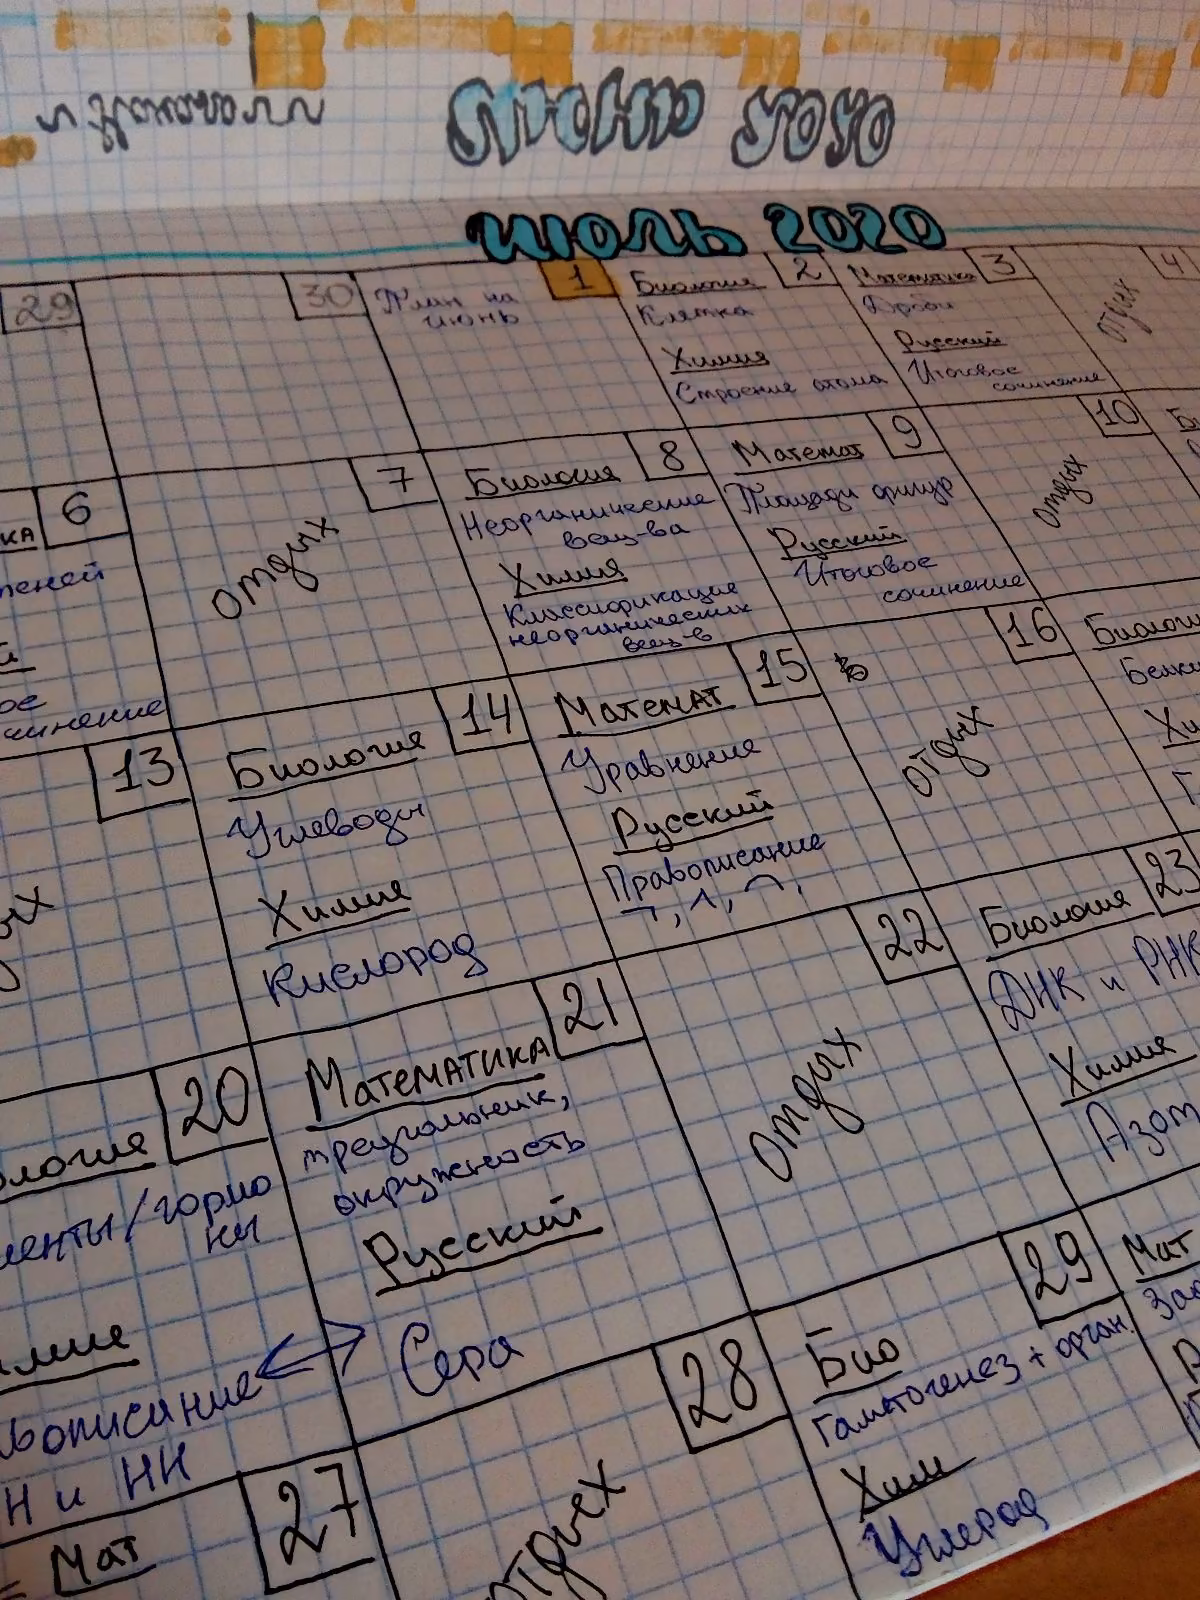 ИЮЛЬ 2020
29
30
1
План на
июнь
2
Биология
Клетка
Химия
Строение атома
3
Математика
Дроби
Русский
Итоговое
сочинение
4
отдых
6
КА
пеней
й
ое
чинение
7
отдых
8
Биология
Неорганические
вещ-ва
Химия
Классификация
неорганических
вещ-в
9
Математ
Площади фигур
Русский
Итоговое
сочинение
10
отдых
13
ых
14
Биология
Углеводы
Химия
Кислород
15
Математ
Уравнение
Русский
Правописание
¬, ^, ⌒,
16
отдых
Биологи
Белки
Хи
20
ология
менты/гормо
ны
имия
вописание
Н и НН
21
Математика
треугольник,
окружность
Русский
Сера
22
отдых
23
Биология
ДНК и РНК
Химия
Азот
27
Мат
28
отдых
29
Био
Гаметогенез + орган.
Хим
Углерод
Мат